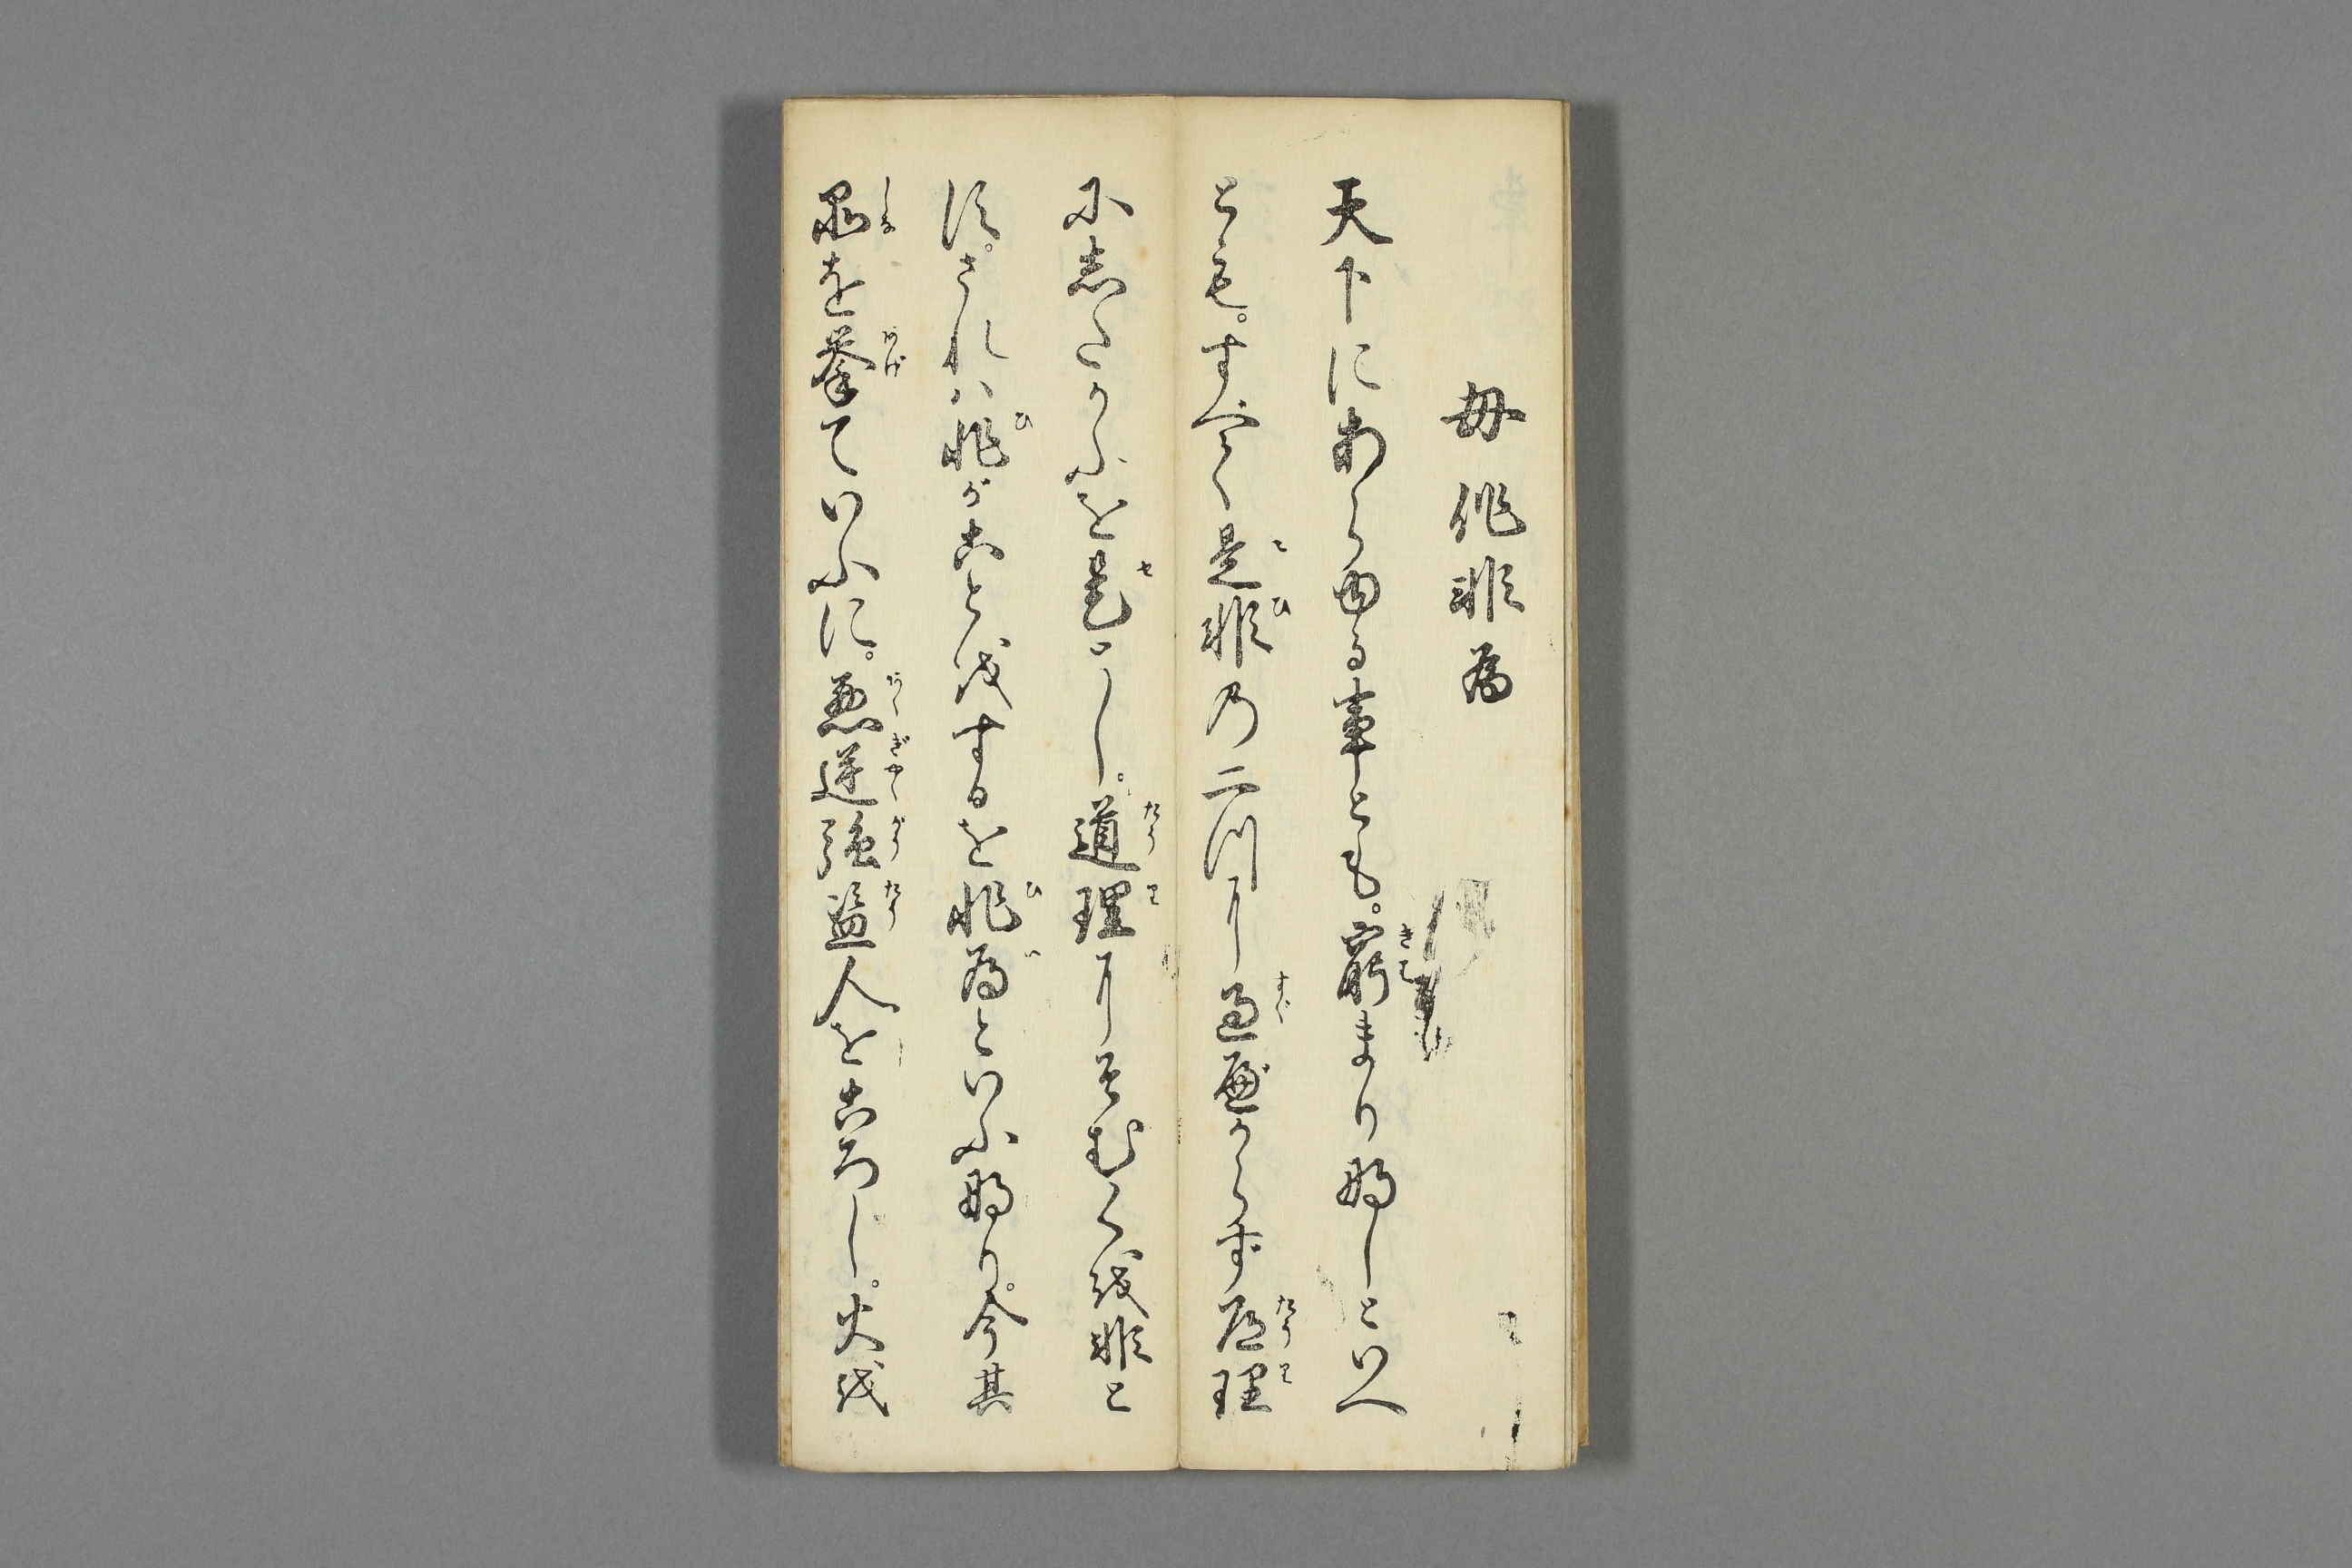 毋作非為
天下にあらゆる事とも。窮まりなしといへ
とも。すべて是非の二つに過べからず道理
にしたかふを是とし。道理にそむくを非と
す。されハ非がことをするを非為といふなり。今其
品を挙ていふに。悪逆強盗人をころし。火を